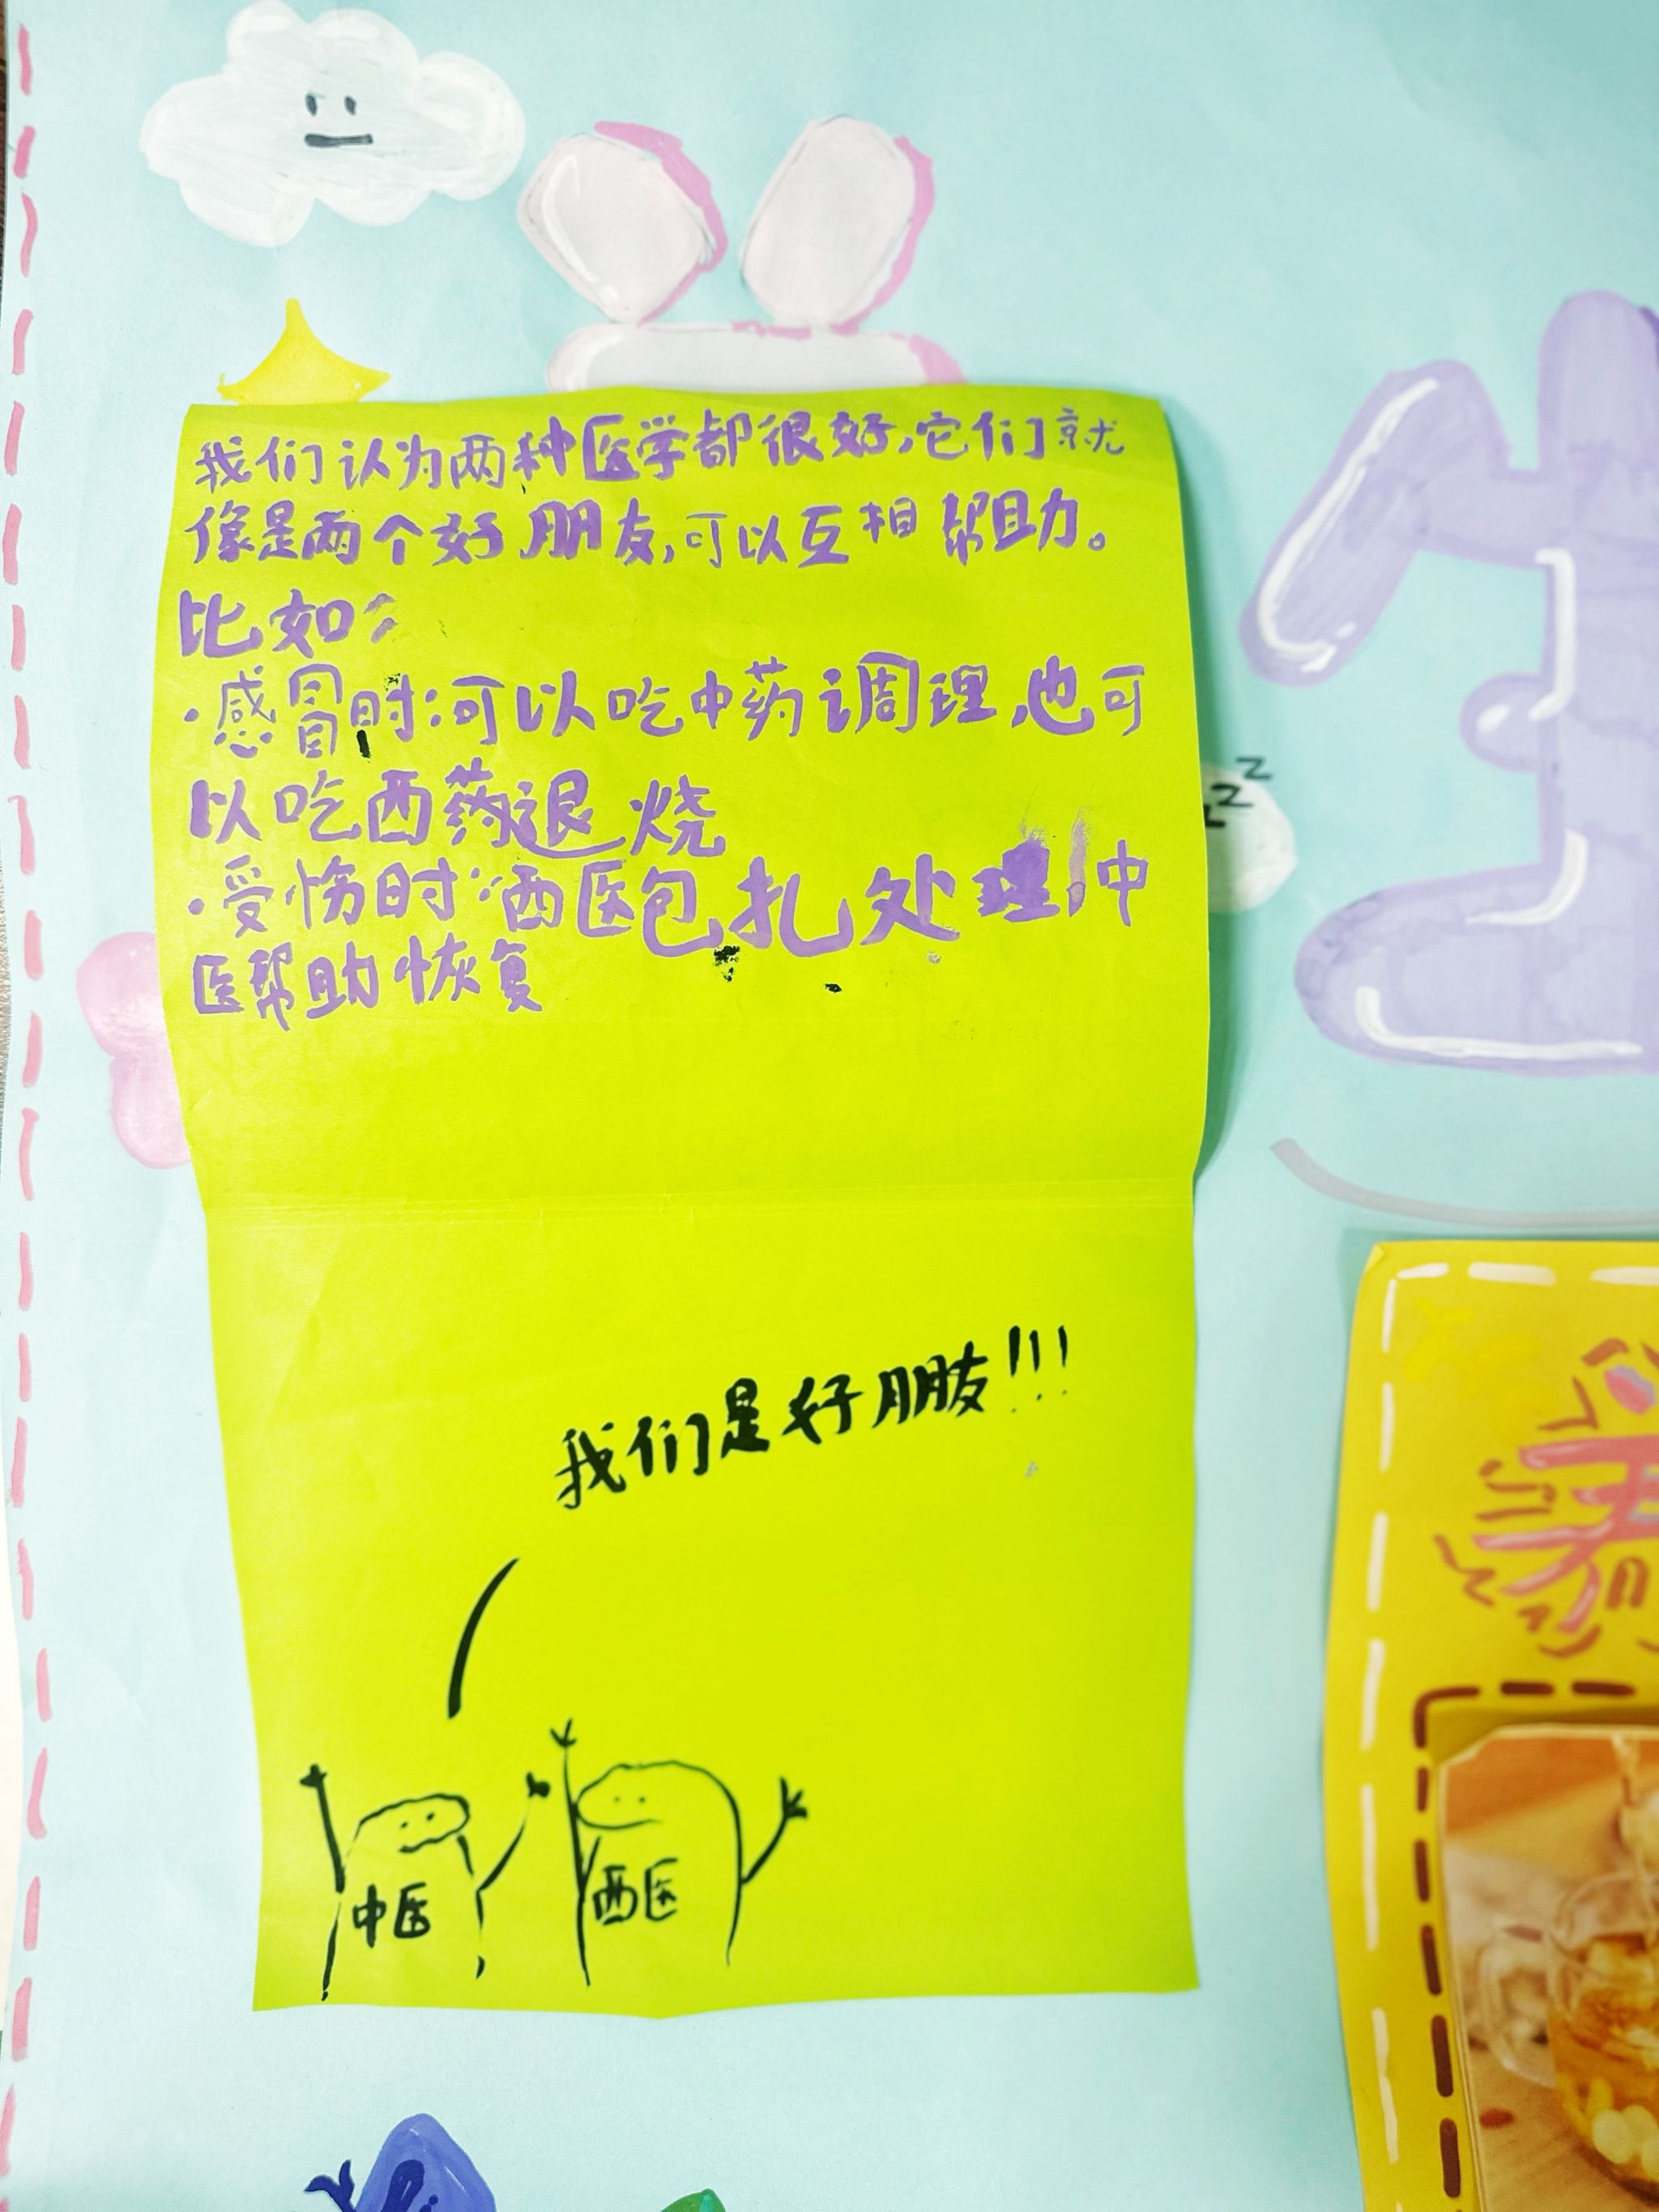 我们认为两种医学都很好,它们就
像是两个好朋友,可以互相帮助。
比如:
·感冒时:可以吃中药调理,也可
以吃西药退烧
·受伤时:西医包扎处理,中
医帮助恢复
zz
我们是好朋友!!!
中医
西医